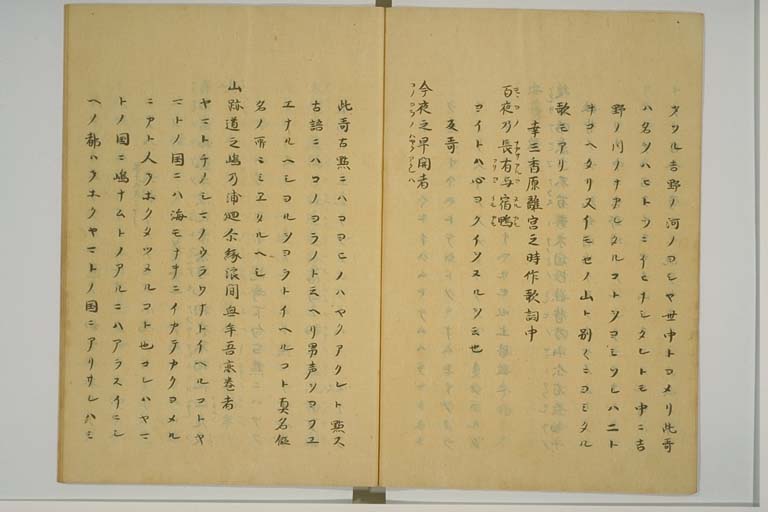 タツル吉野ノ河ノヨシヤ世中トヨメリ此哥
野ノ川ノナアヒタルコトソヨミツレハニト
キコヘタリスイモセノ山ト別々ニヨミタル
歌モアリ
幸三香原離宮之時作歌詞中
百夜乃長有与宿鴨
ヨイトハ心ヨクイツヌルソ云也
反哥
今夜之早開者
此哥古點ニハコヨヒノハヤクアクレト點ス
古語ニハコノヨラノトミヘリ男声ソヨフユ
エナルヘシヨルソヨラトイヘルコト真名仮
名ノ所ニミエタルヘシ
山跡道之嶋乃浦廻尓縁浪間無牟吾恋巻者
ヤマトチノシマノウラワナトイヘルコトヤ
マトノ国ニハ海モナキニイカテカクヨメル
ニアト人々ホクタツヌルコト也コレハヤマ
トノ国ニ嶋ナムトノアルニハアラスイニシ
ヘノ都ハ々ホクヤマトノ国ニアリサレハミ